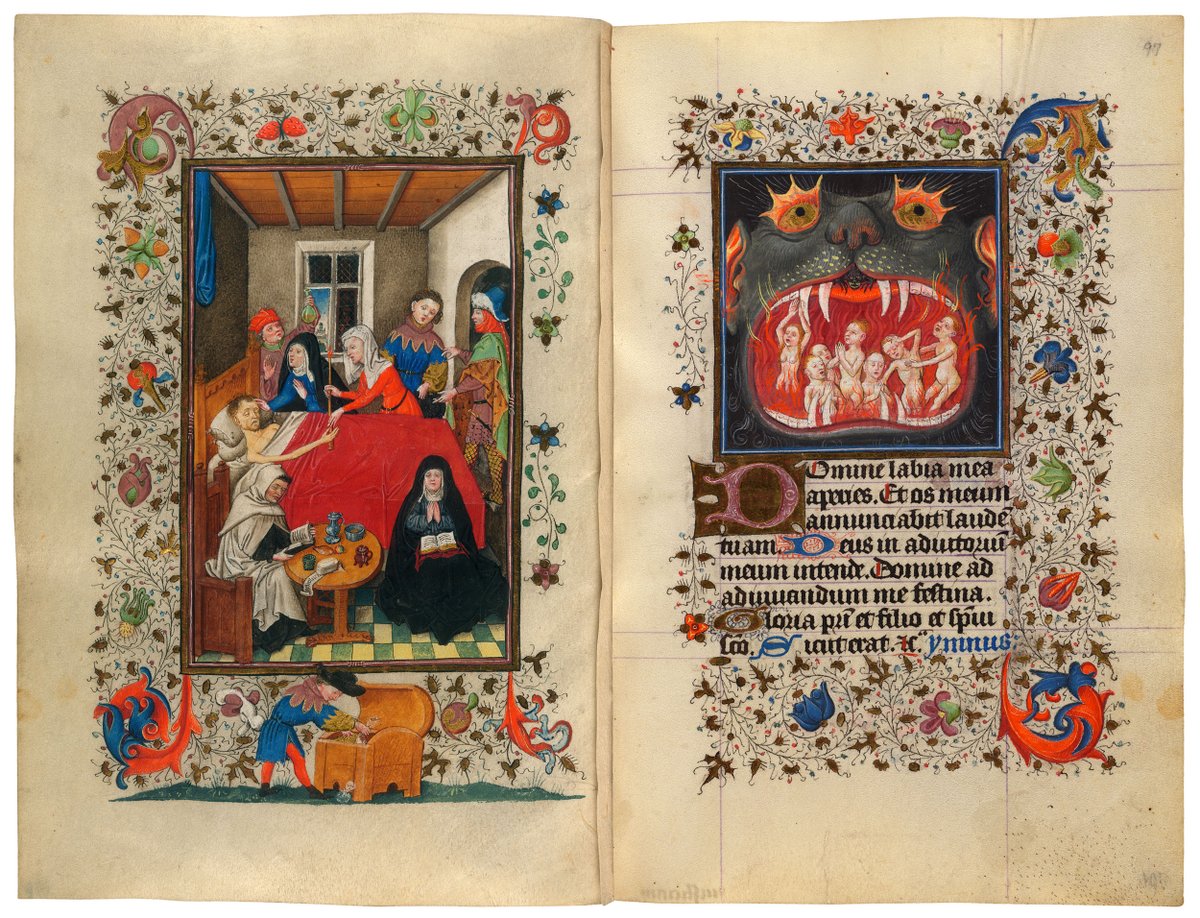 97
Domine labia mea
aperies. Et os meum
annunciabit laudē
tuam. Deus in adiutoriū
meum intende. Domine ad
adiuuandum me festina.
Gloria pr̄i et filio et sp̄ui
sc̄o. Sicut erat. ꝛc̄. ymnus: